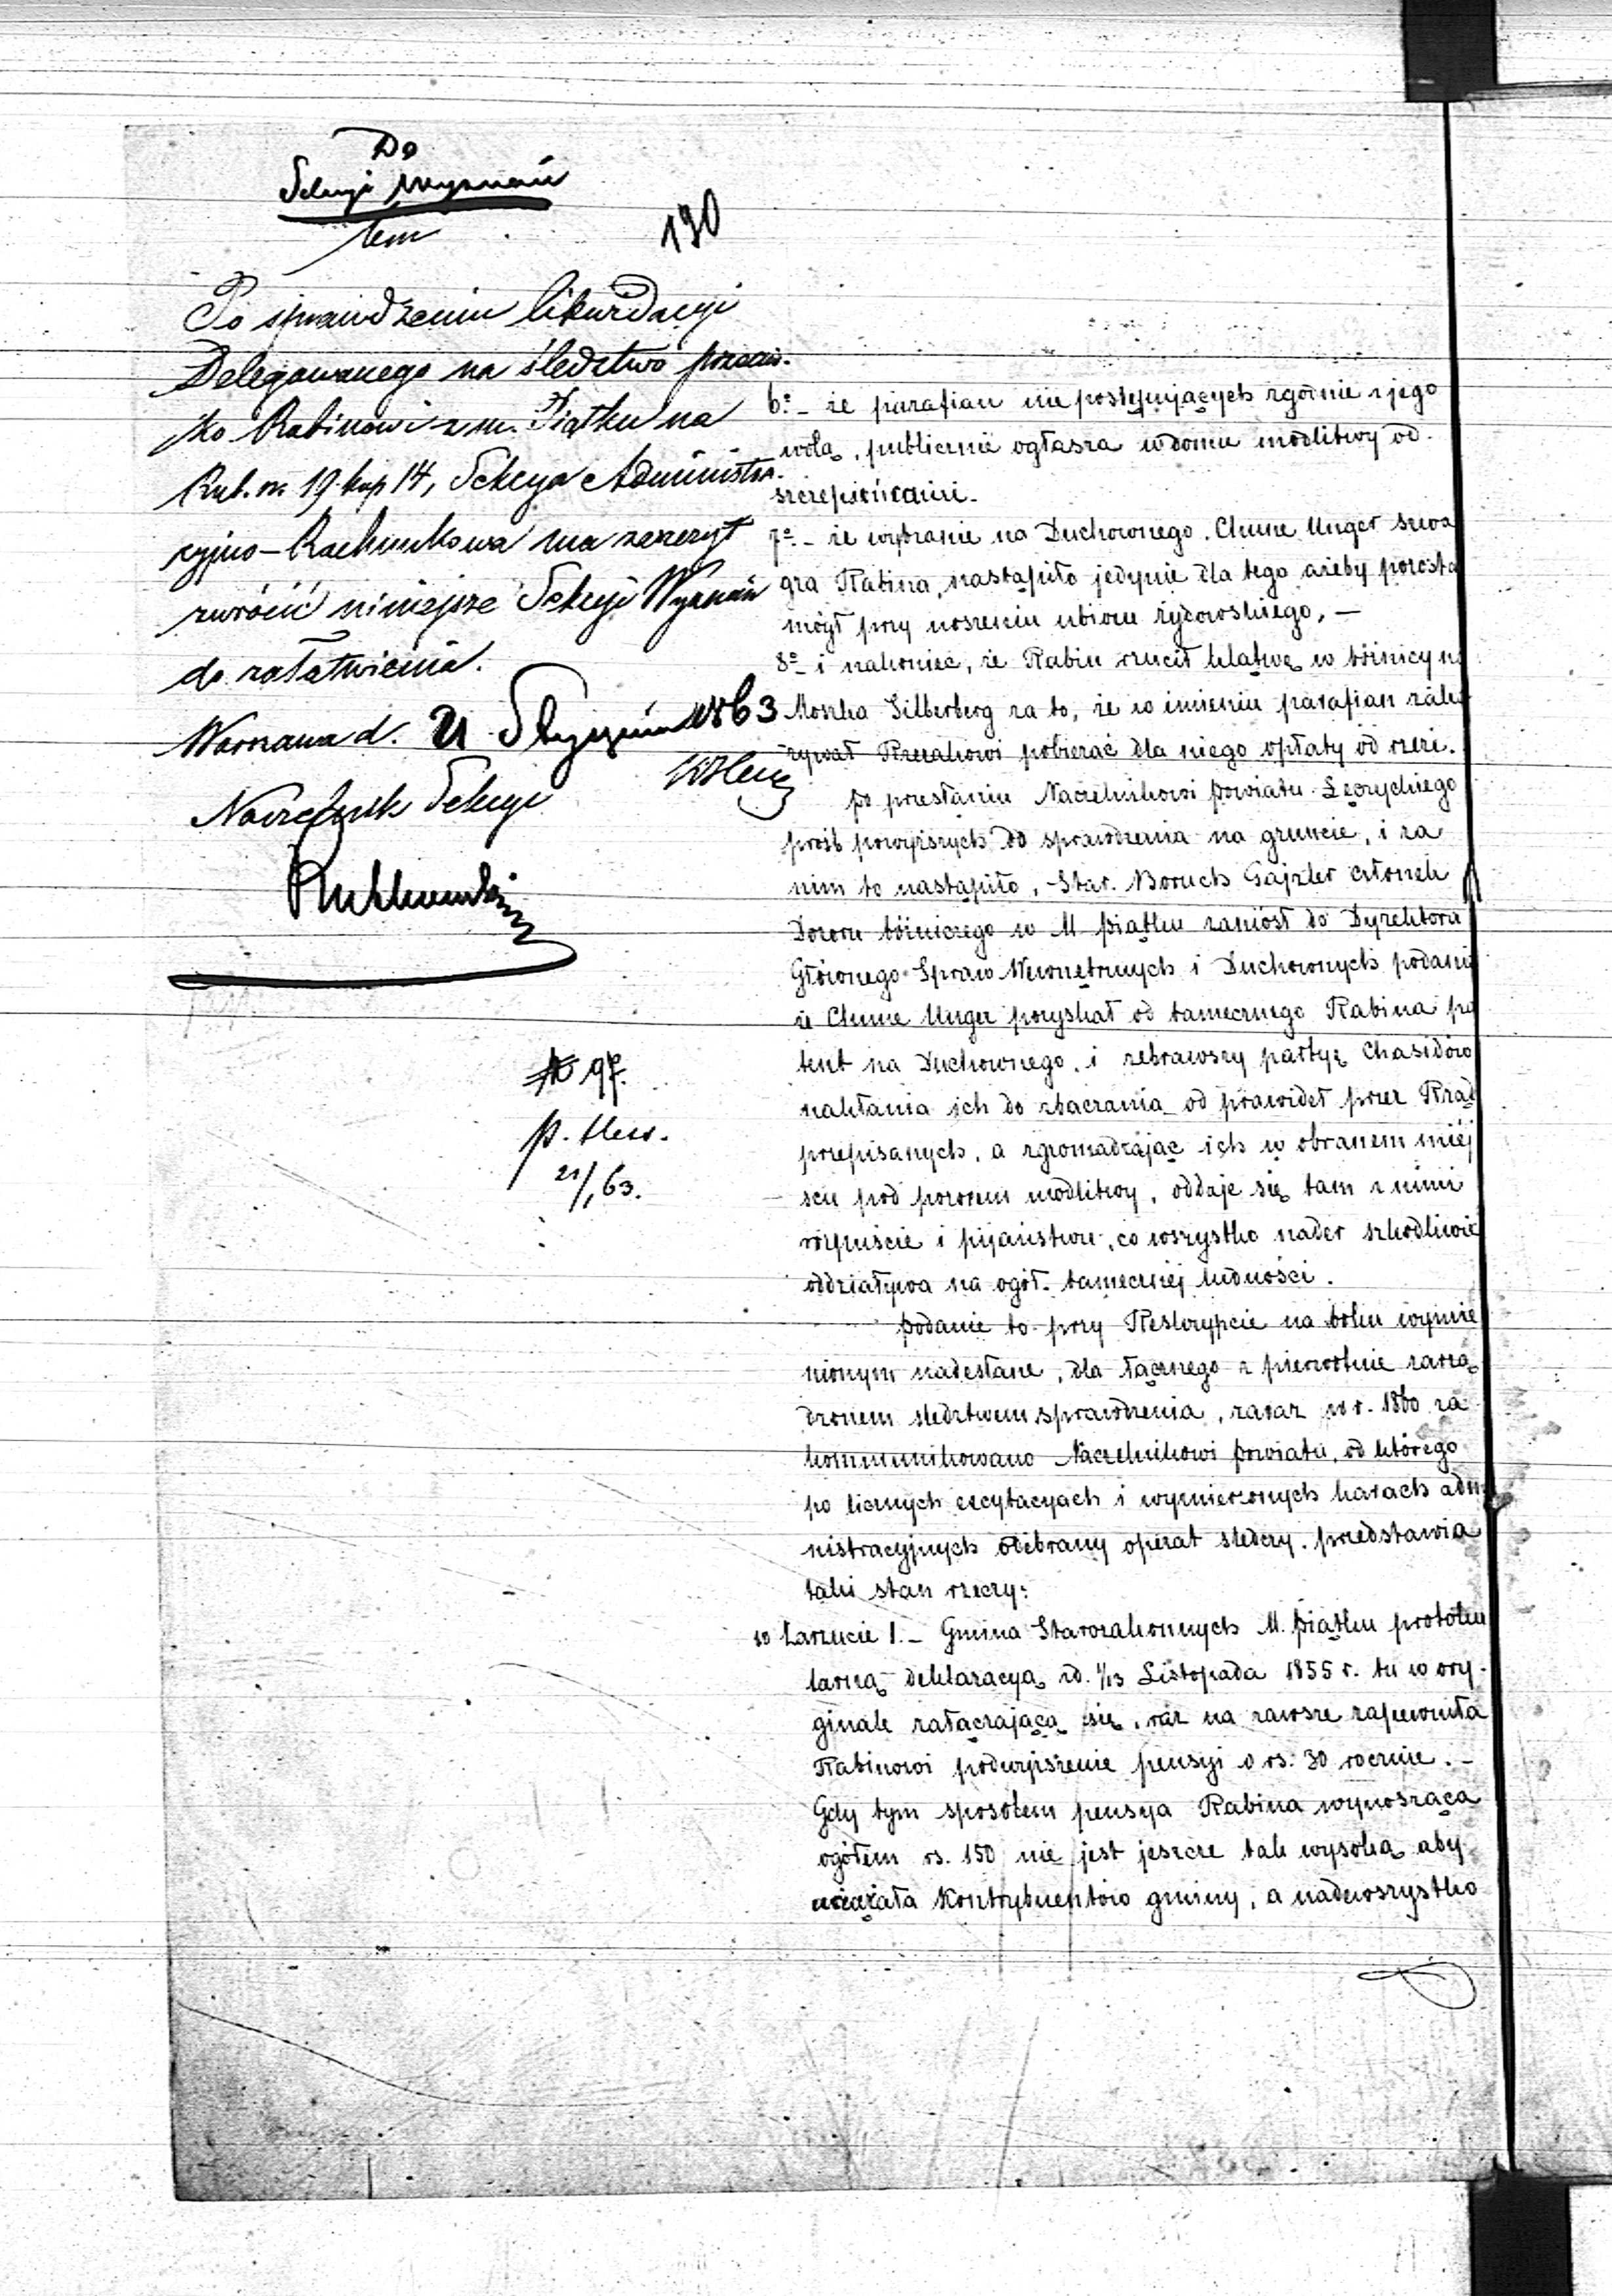 Do
Sekcyi Wyznań
tem
190
Po sprawdzeniu likwidacyi
Delegowanego na śledztwo przeciw-
ko Rabinowi z m. Piątku na
Rub. sr. 19 kop 14, Sekcya Administra-
cyjno-Rachunkowa ma zaszczyt
zwrócić niniejsze Sekcyi Wyznań
do załatwienia.
Warszawa d. 21 Stycznia 1863
Naczelnik Sekcyi
№ 97.
21/1 63.
6º- że parafian nie postępujących zgodnie z jego
wolą, publicznie ogłasza w domu modlitwy od-
szczepieńcami.
7º- że wybranie na Duchownego, Chune Unger szwa
gra Rabina, nastąpiło jedynie dla tego ażeby pozosta
mógł przy noszeniu ubioru żydowskiego, —
8º- i nakoniec, że Rabin rzucił klątwę w bóżnicy na
Moszka Silberberg za to, że w imieniu parafian zaka
zywał Rzezakowi pobierać dla niego opłaty od rzezi.
Po przesłaniu Naczelnikowi Powiatu Łęczyckiego
prośb powyższych do sprawdzenia na gruncie, i za
nim to nastąpiło, Star. Boruch Gajzler członek
Dozoru bóżniczego w M. Piątku zaniósł do Dyrektora
Głównego Spraw Wewnętrznych i Duchownych podanie
że Chune Unger pozyskał od tamecznego Rabina pa
tent na Duchownego, i zebrawszy partyę Chasidów
nakłania ich do zbaczania od prawideł przez Rząd
przepisanych, a zgromadzając ich w obranem miej
scu pod pozorem modlitwy, oddaje się tam z nimi
rozpuście i pijaństwu, co wszystko nader szkodliwie
oddziaływa na ogół tamecznej ludności.
Podanie to przy Reskrypcie na boku wymie
nionym nadesłane, dla łącznego z pierwotnie zarzą
dzonem śledztwem sprawdzenia, zaraz w r. 1860 za
kommunikowano Naczelnikowi Powiatu, od którego
po licznych excytacyach i wymierzonych karach admi
nistracyjnych odebrany operat śledczy, przedstawia
taki stan rzeczy:
co zarzucie 1.- Gmina Starozakonnych M. Piątku protoku
larną deklaracyą zd. 1/13 Listopada 1855 r. tu w ory-
ginale załączającą się, raz na zawsze zapewniła
Rabinowi podwyższenie pensyi o rs: 30 rocznie. -
Gdy tym sposobem pensya Rabina wynosząca
ogółem rs. 150 nie jest jeszcze tak wysoką aby
uciążała Kontrybuentów gminy, a nadewszystko